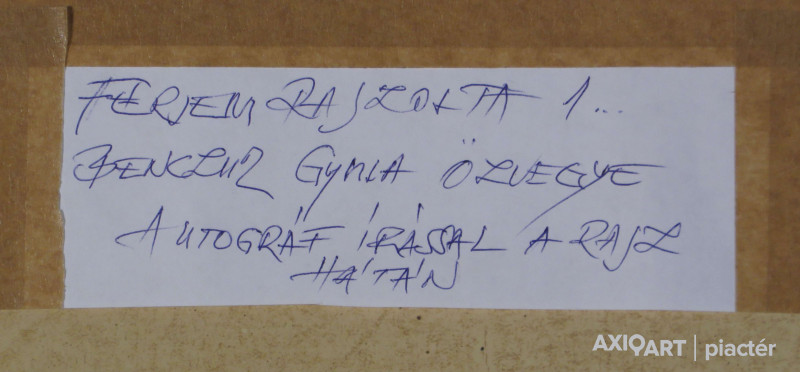 FERJEM RAJZOLTA 1...
BENCZUR GYULA ÖZVEGYE
AUTOGRÁF ÍRÁSSAL A RAJZ
HÁTÁN
AXIOART | piactér